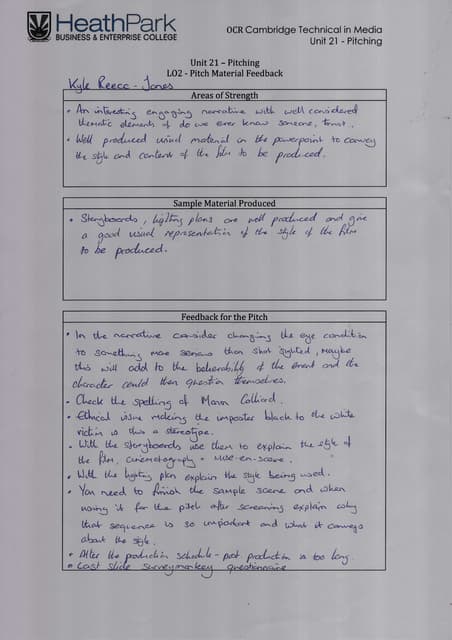 HeathPark
BUSINESS & ENTERPRISE COLLEGE
OCR Cambridge Technical in Media
Unit 21 - Pitching
Unit 21 – Pitching
LO2 - Pitch Material Feedback
Kyle Reece - Jones
Areas of Strength
• An interesting engaging narrative with well considered
thematic elements of do we ever know someone, trust.
• Well produced visual material in the powerpoint to convey
the style and content of the film to be produced.
Sample Material Produced
• Storyboards, lighting plans are well produced and give
a good visual representation of the style of the film
to be produced.
Feedback for the Pitch
• In the narrative consider changing the eye condition
to something more serious than short sighted, maybe
this will add to the believability of the event and the
character could then question themselves.
• Check the spelling of Marion
• Ethical issue making the imposter black to the white
victim is this a stereotype.
• With the storyboards use them to explain the style of
the film, cinematography + mise-en-scene.
• With the lighting plan explain the style being used.
• You need to finish the sample scene and when
using it for the pitch after screening explain why
that sequence is so important and what it conveys
about the style.
• Alter the production schedule - post production is too long.
• Last slide surveymonkey questionnaire